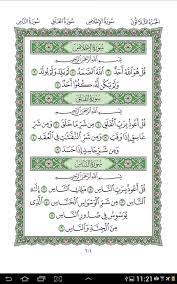 الجزء الثلاثون سورة الإخلاص سورة الفلق سورة الناس
سورة الإخلاص
بِسْمِ ٱللَّهِ ٱلرَّحْمَٰنِ ٱلرَّحِيمِ
قُلْ هُوَ ٱللَّهُ أَحَدٌ ١ ٱللَّهُ ٱلصَّمَدُ ٢ لَمْ يَلِدْ وَلَمْ يُولَدْ
٣ وَلَمْ يَكُن لَّهُۥ كُفُوًا أَحَدٌۢ ٤
سورة الفلق
بِسْمِ ٱللَّهِ ٱلرَّحْمَٰنِ ٱلرَّحِيمِ
قُلْ أَعُوذُ بِرَبِّ ٱلْفَلَقِ ١ مِن شَرِّ مَا خَلَقَ ٢ وَمِن شَرِّ
غَاسِقٍ إِذَا وَقَبَ ٣ وَمِن شَرِّ ٱلنَّفَّٰثَٰتِ فِي ٱلْعُقَدِ ٤
وَمِن شَرِّ حَاسِدٍ إِذَا حَسَدَ ٥
سورة الناس
بِسْمِ ٱللَّهِ ٱلرَّحْمَٰنِ ٱلرَّحِيمِ
قُلْ أَعُوذُ بِرَبِّ ٱلنَّاسِ ١ مَلِكِ ٱلنَّاسِ ٢ إِلَٰهِ
ٱلنَّاسِ ٣ مِن شَرِّ ٱلْوَسْوَاسِ ٱلْخَنَّاسِ ٤ ٱلَّذِي
يُوَسْوِسُ فِي صُدُورِ ٱلنَّاسِ ٥
مِنَ ٱلْجِنَّةِ وَٱلنَّاسِ ٦
٦٠٤
11:21